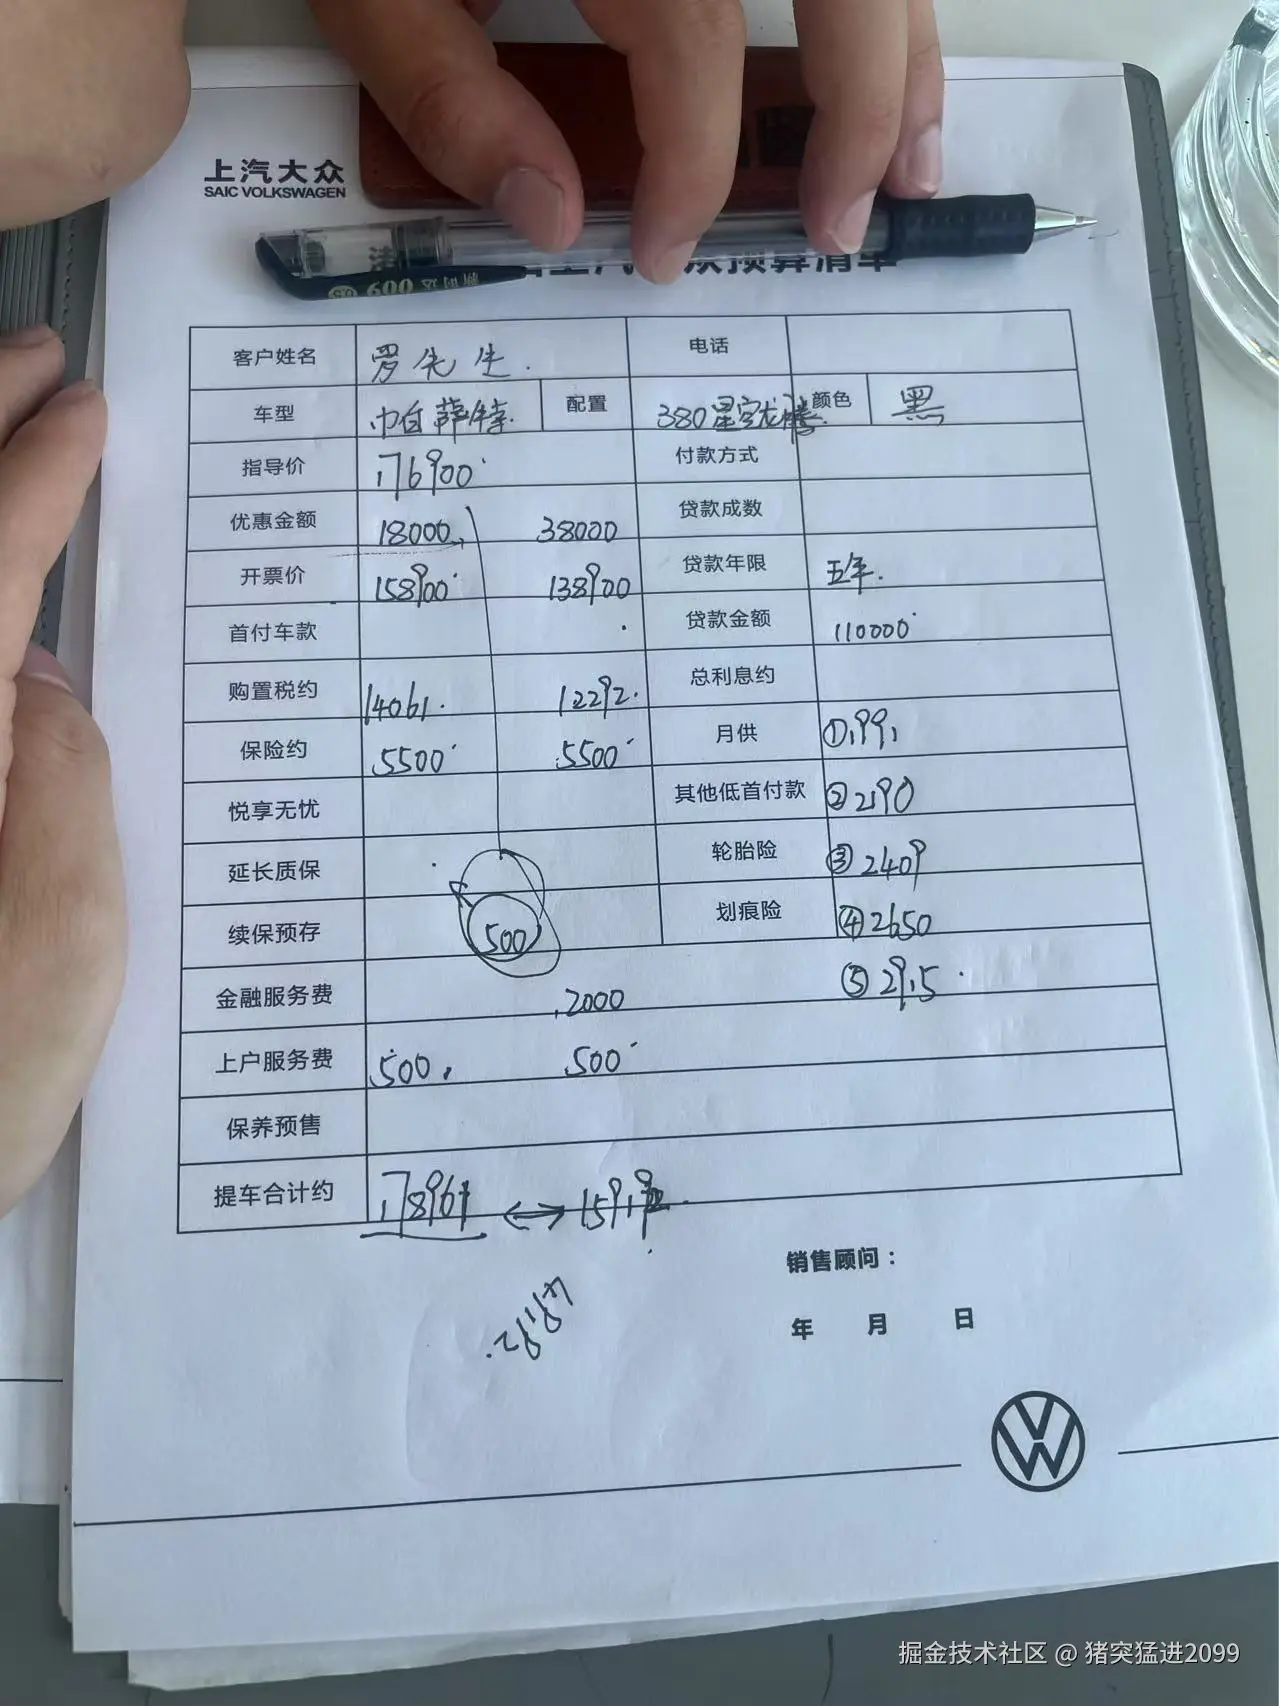 上汽大众
SAIC VOLKSWAGEN
预算清单
客户姓名 罗先生. 电话
车型 帕萨特. 配置 380星空龙腾. 颜色 黑
指导价 176900 付款方式
优惠金额 18000 38000 贷款成数
开票价 158900 138900 贷款年限 五年.
首付车款 贷款金额 110000
购置税约 14061. 12292. 总利息约
保险约 5500 5500 月供 ①1991
悦享无忧 其他低首付款 ②2190
延长质保 轮胎险 ③2409
续保预存 500 划痕险 ④2650
⑤2915
金融服务费 2000
上户服务费 500. 500
保养预售
提车合计约 178961 ↔
销售顾问：
年 月 日
掘金技术社区 @ 猪突猛进2099